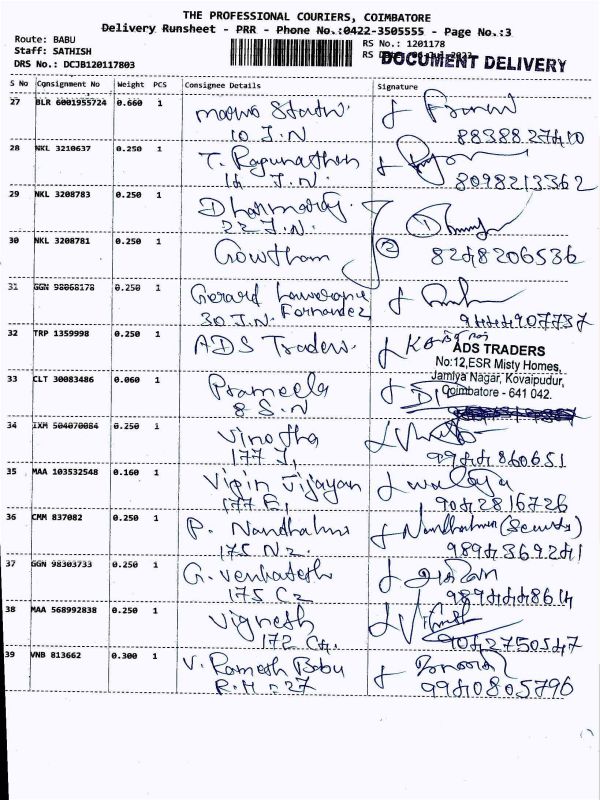 THE PROFESSIONAL COURIERS, COIMBATORE
Delivery Runsheet - PRR - Phone No.:0422-3505555 - Page No.:3
Route: BABU
Staff: SATHISH
DRS No.: DCJB120117803
RS No.: 1201178
DOCUMENT DELIVERY
S No Consignment No Weight PCS Consignee Details Signature
27 BLR 6001955724 0.660 1
10 J.N 8838827410
28 NKL 3210637 0.250 1 T. Ragunathan
14 J.N. 8098213362
29 NKL 3208783 0.250 1 Dharmaraj.
22 J.N.
30 NKL 3208781 0.250 1 Gowtham 2 8248206536
31 GGN 98068178 0.250 1 Gerard
30 J.N. Fernandez 9444907737
32 TRP 1359998 0.250 1 ADS Traders.
ADS TRADERS
No:12,ESR Misty Homes,
Jamiya Nagar, Kovaipudur,
Coimbatore - 641 042.
33 CLT 30083486 0.060 1 Prameela
8 S.N
34 IXM 504070084 0.250 1 Vinotha
177 J, 9944860651
35 MAA 103532548 0.160 1 Vipin Vijayan
177 E, 9042816726
36 CMM 837082 0.250 1 P. Nandhalmi
175 N2. 9894369241
37 GGN 98303733 0.250 1 G. Venkatesh
175 C2 9894448614
38 MAA 568992838 0.250 1 Vignesh
172 C4. 9042750547
39 VNB 813662 0.300 1 V. Ramesh Babu
R.H - 27 9940805796